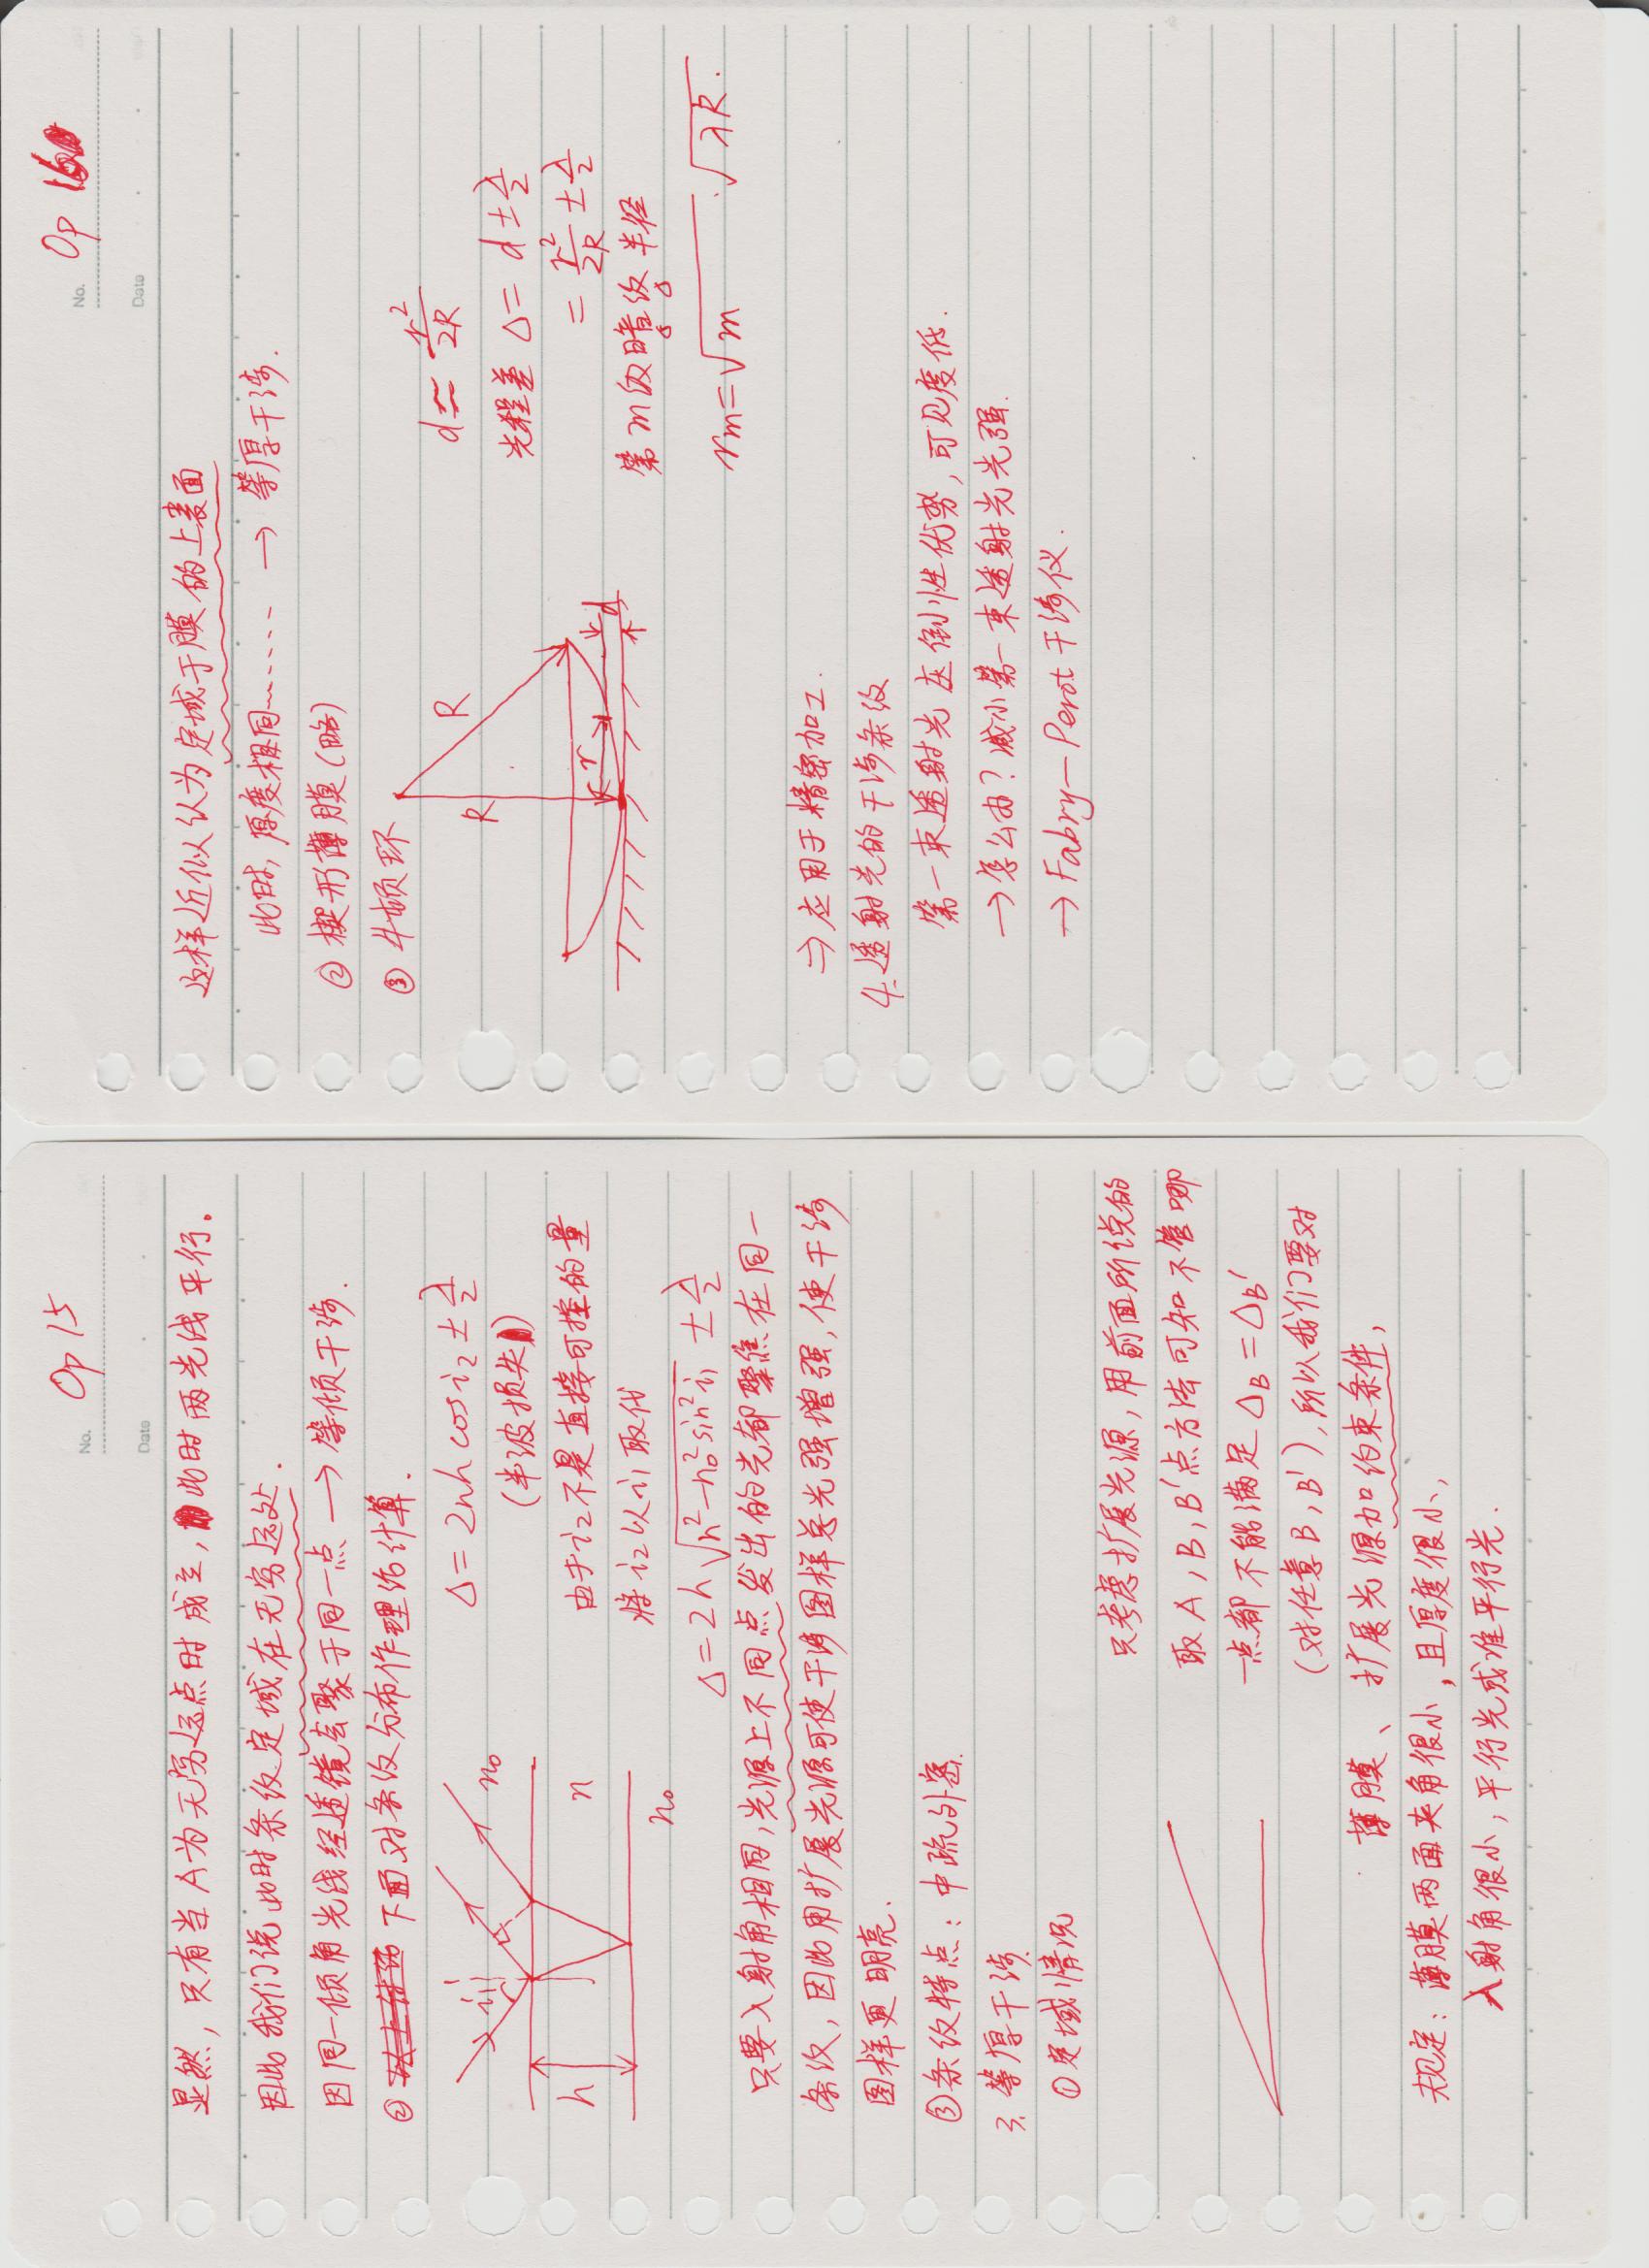 No. Op 15
Date
显然，只有当A为无穷远点时成立，此时两光线平行。
因此我们说此时条纹定域在无穷远处.
因同一倾角光线经透镜会聚于同一点 → 等倾干涉.
② 下面对条纹分布作理论计算.
i₁
n₀
h
n
n₀
Δ = 2nh cos i₂ ± λ/2
(半波损失)
由于i₂不是直接可控的量
将i₂以i₁取代
Δ = 2h √(n²-n₀² sin² i₁) ± λ/2
只要入射角相同，光源上不同点发出的光都聚焦在同一
条纹，因此用扩展光源可使干涉图样总光强增强，使干涉
图样更明亮.
③ 条纹特点：中疏外密.
3. 等厚干涉
① 定域情况
只考虑扩展光源，用前面所说的
取A, B, B'点方法可知不管哪
一点都不能满足 Δ_B = Δ_B'
(对任意B, B'), 所以我们要对
薄膜、扩展光源加约束条件，
规定：薄膜两面夹角很小，且厚度很小，
入射角很小，平行光或准平行光.
No. Op 16
Date
这样近似认为定域于膜的上表面
此时，厚度相同…… → 等厚干涉.
② 楔形薄膜(略)
③ 牛顿环
R
R
r
d
d ≃ r²/2R
光程差 Δ = d ± λ/2
= r²/2R ± λ/2
第m级暗纹半径
rm = √m · √λR.
⇒ 应用于精密加工.
4. 透射光的干涉条纹
第一束透射光压倒性优势，可见度低.
→ 怎么办？减小第一束透射光光强.
→ Fabry-Perot干涉仪.